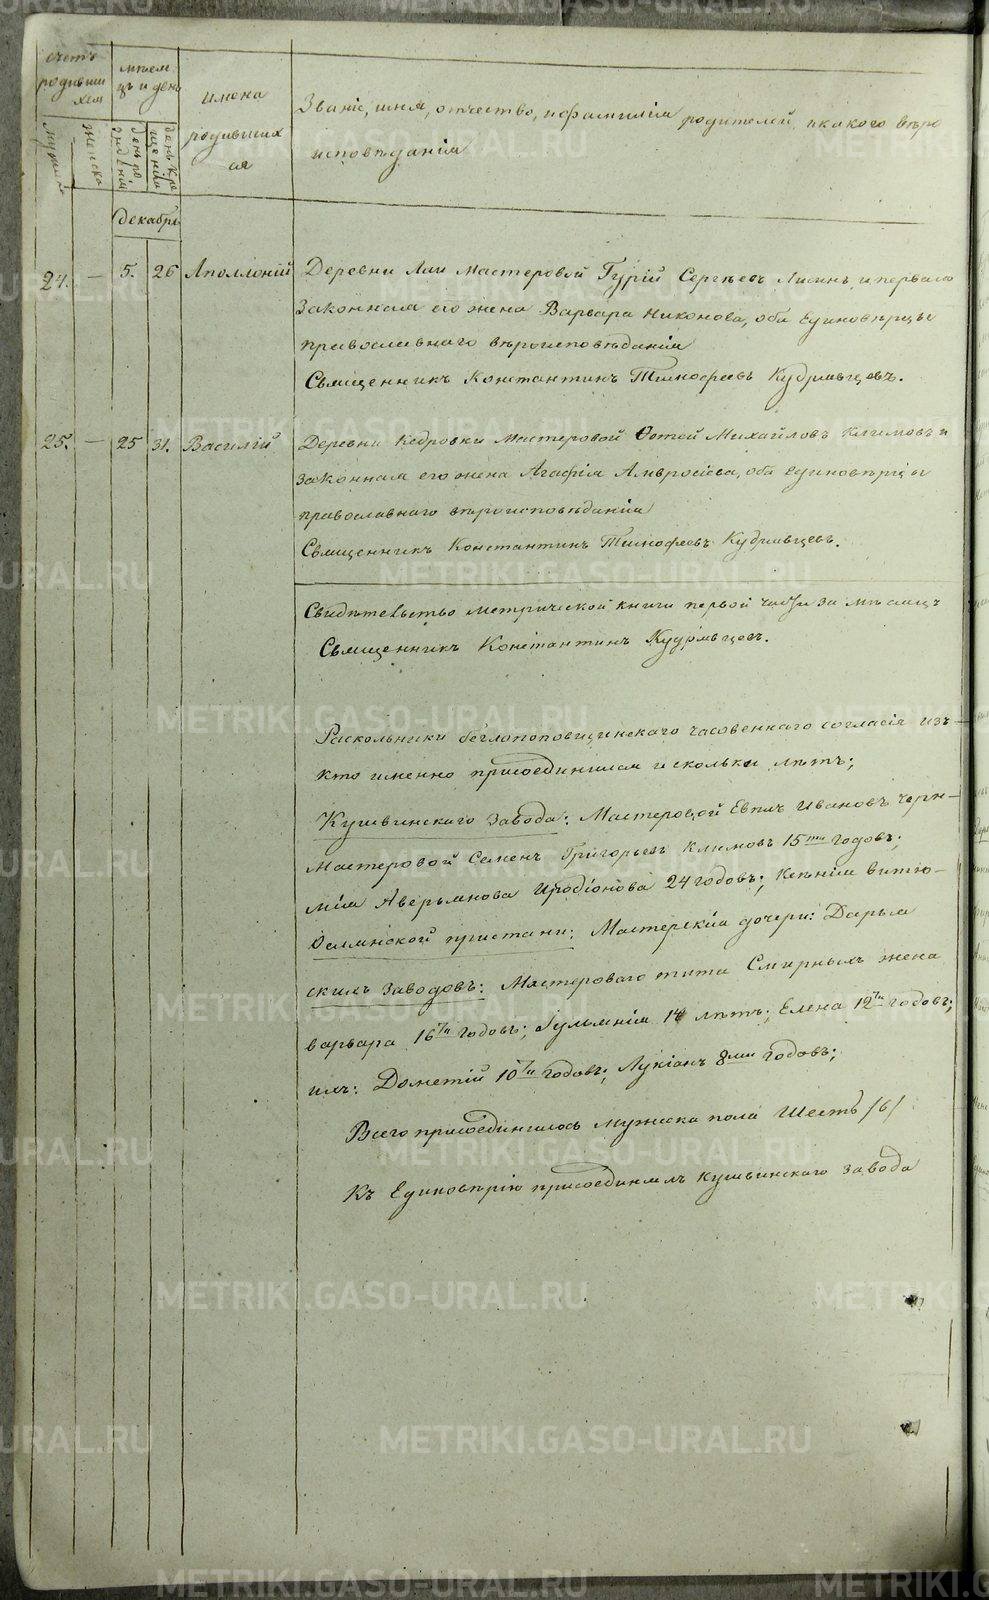 счетъ родившихся
мужска
женска
мѣсяцъ и день
день рожденія
день крещенія
имена родившихся
Званіе, имя, отчество, и фамилія родителей, и какого вѣро
исповѣданія
декабрь
24. — 5. 26 Аполлоній Деревни Лаи мастеровой Гурій Сергѣевъ Лисинъ, и перваго
законная его жена Варвара Никонова, оба единовѣрцы
православнаго вѣроисповѣданія
Священникъ Константинъ Тимофеевъ Кудрявцевъ.
25. — 25 31. Василій Деревни Кедровки мастеровой Фотей Михайловъ Климовъ и
законная его жена Агафія Амвросіева, оба единовѣрцы
православнаго вѣроисповѣданія
Священникъ Константинъ Тимофеевъ Кудрявцевъ.
Свидѣтельство метрической книги первой части за мѣсяцъ
Священникъ Константинъ Кудрявцевъ.
Раскольники беглопоповщинскаго часовеннаго согласія изъ
кто именно присоединился и сколькы лѣтъ;
Кушвинскаго завода: Мастеровой Иванов черн—
Мастеровой Семенъ Григорьевъ Климовъ 15ти годовъ;
мія Аверьянова Иродіонова 24 годовъ; Ксѣнія витію—
Ослянской пристани: Мастерскія дочери: Дарья
скихъ заводовъ: Мастероваго тита Смирныхъ жена
варвара 16ти годовъ; Гульянія 14 лѣтъ; Елена 12ти годовъ;
ихъ: Дометій 10ти годовъ; Лукіанъ 8ми годовъ;
Всего присоединилось мужеска пола Шесть /6/
Къ Единовѣрію присоединялъ кушвинскаго завода
METRIKI.GASO-URAL.RU